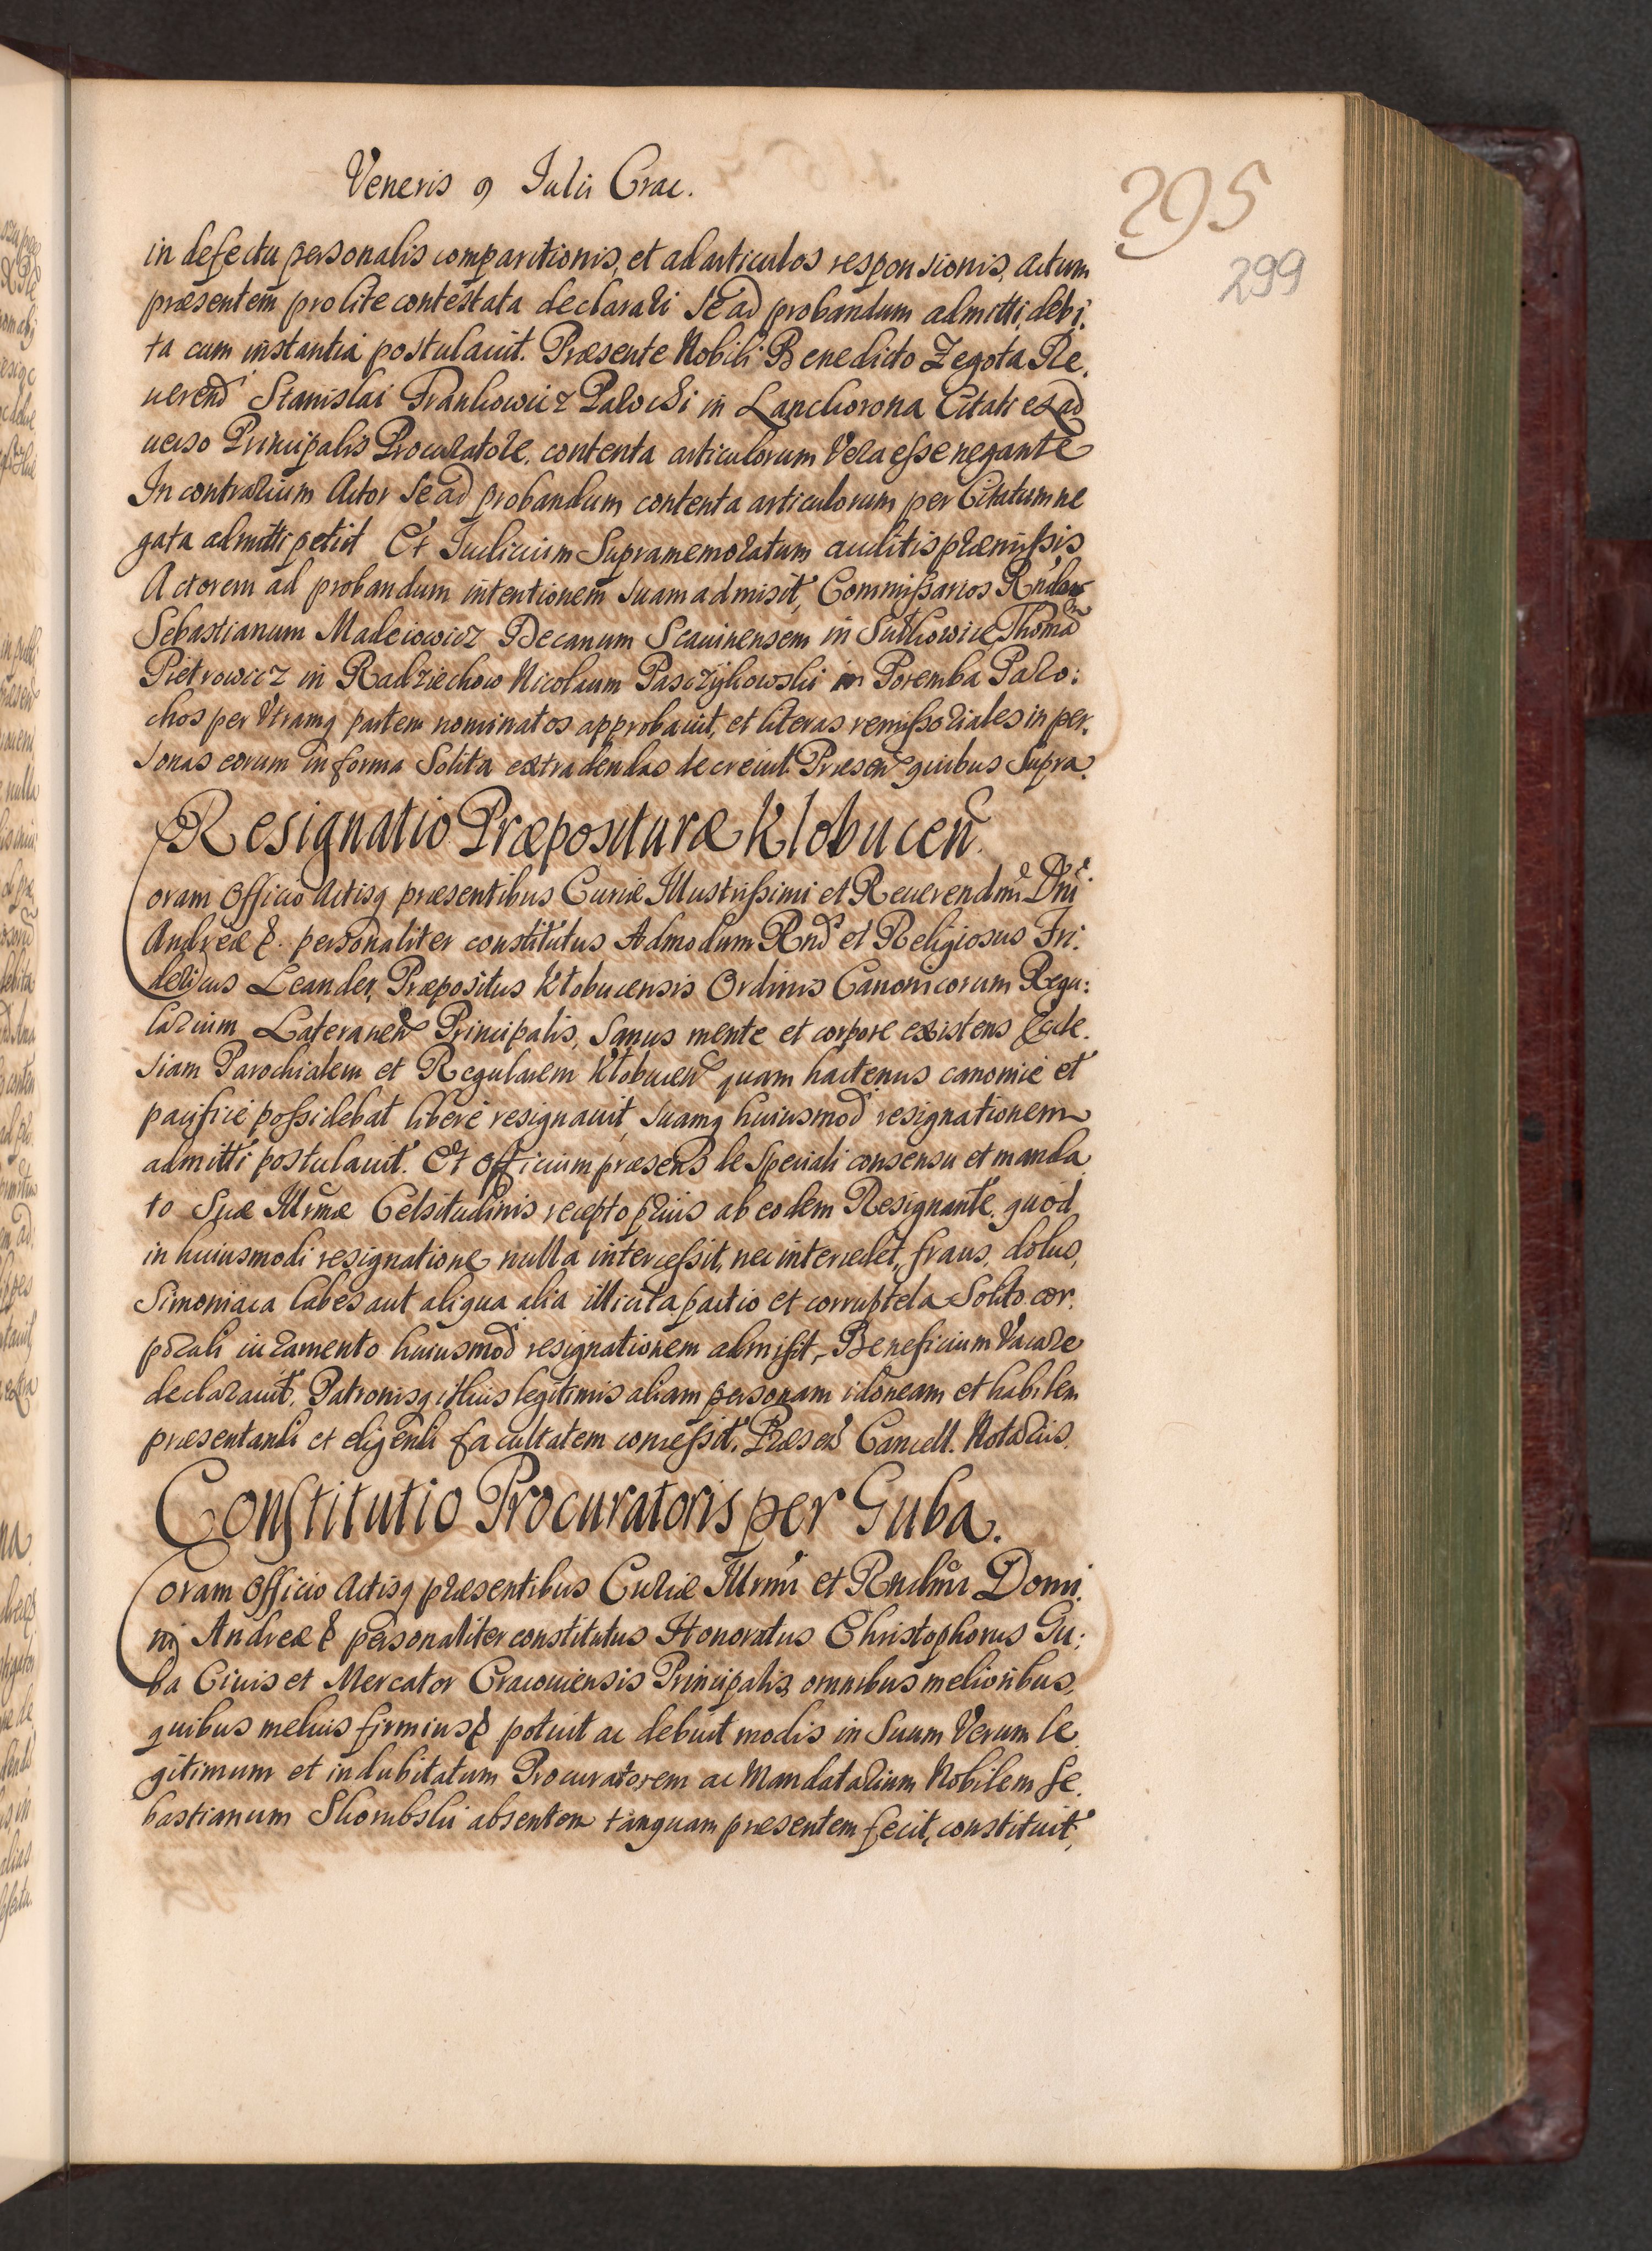 Veneris 9 Julii Crac.
295
299
in defectu personalis comparitionis, et ad articulos responsionis, actum
præsentem pro lite contestata declarari se ad probandum admitti, debi:
ta cum instantia postulauit. Præsente Nobili Benedicto Zegota Re.
uerend Stanislai Frankowicz Parochi in Lanckorona Citati ex ad
uerso Principalis Procuratore, contenta articulorum Vera esse negante
In contrarium Actor se ad probandum contenta articulorum per Citatum ne
gata admitti petiit Et Iudicium Supramemoratum auditis præmissis
Actorem ad probandum intentionem suam admisit, Commissarios Rndos
Sebastianum Maleiowicz Decanum Scauinensem in Sulkowice Thomā
Pietrowicz in Radziechow Nicolaum Pasczÿkowski in Poremba Paro:
chos per Utramq partem nominatos approbauit, et literas remissoriales in per.
sonas eorum in forma Solita extradendas decreuit. Præsen quibus Supra.
Resignatio Præposituræ Klobucen.
Coram Officio Actisq præsentibus Curiæ Illustrissimi et Reuerendmi Dni
Andreæ &. personaliter constitutus Admodum Rnd et Religiosus Fri:
dericus Leander, Præpositus Klobucensis Ordinis Canonicorum Regu:
larium Lateranen Principalis, sanus mente et corpore existens Eccle.
siam Parochialem et Regularem Klobucen quam hactenus canonicè et
pacificè possidebat liberè resignauit, suamq huiusmod resignationem
admitti postulauit. Et Officium præsens de Speciali consensu et manda
to Suæ Illrmæ Celsitudinis recepto priùs ab eodem Resignante, quòd
in huiusmodi resignatione nulla intercessit, nec intercedet, fraus, dolus,
Simoniaca labes aut aliqua alia illicita pactio et corruptela Solito cor.
porali iuramento huiusmod resignationem admisit, Beneficium Vacare
declarauit, Patronisq illius legitimis aliam personam idoneam et habilem
præsentandi et eligendi facultatem concessit. Præsen Cancell. Notarius.
Constitutio Procuratoris per Guba.
Coram Officio Actisq præsentibus Curiæ Illrmi et Rndmi Domi
ni Andreæ & personaliter constitutus Honoratus Christophorus Gu:
ba Ciuis et Mercator Cracouiensis Principalis, omnibus melioribus,
quibus meliùs firmius & potuit ac debuit modis in Suum Verum le.
gitimum et indubitatum Procuratorem ac Mandatarium Nobilem Se.
bastianum Skorubski absentem tanquam præsentem fecit, constituit,